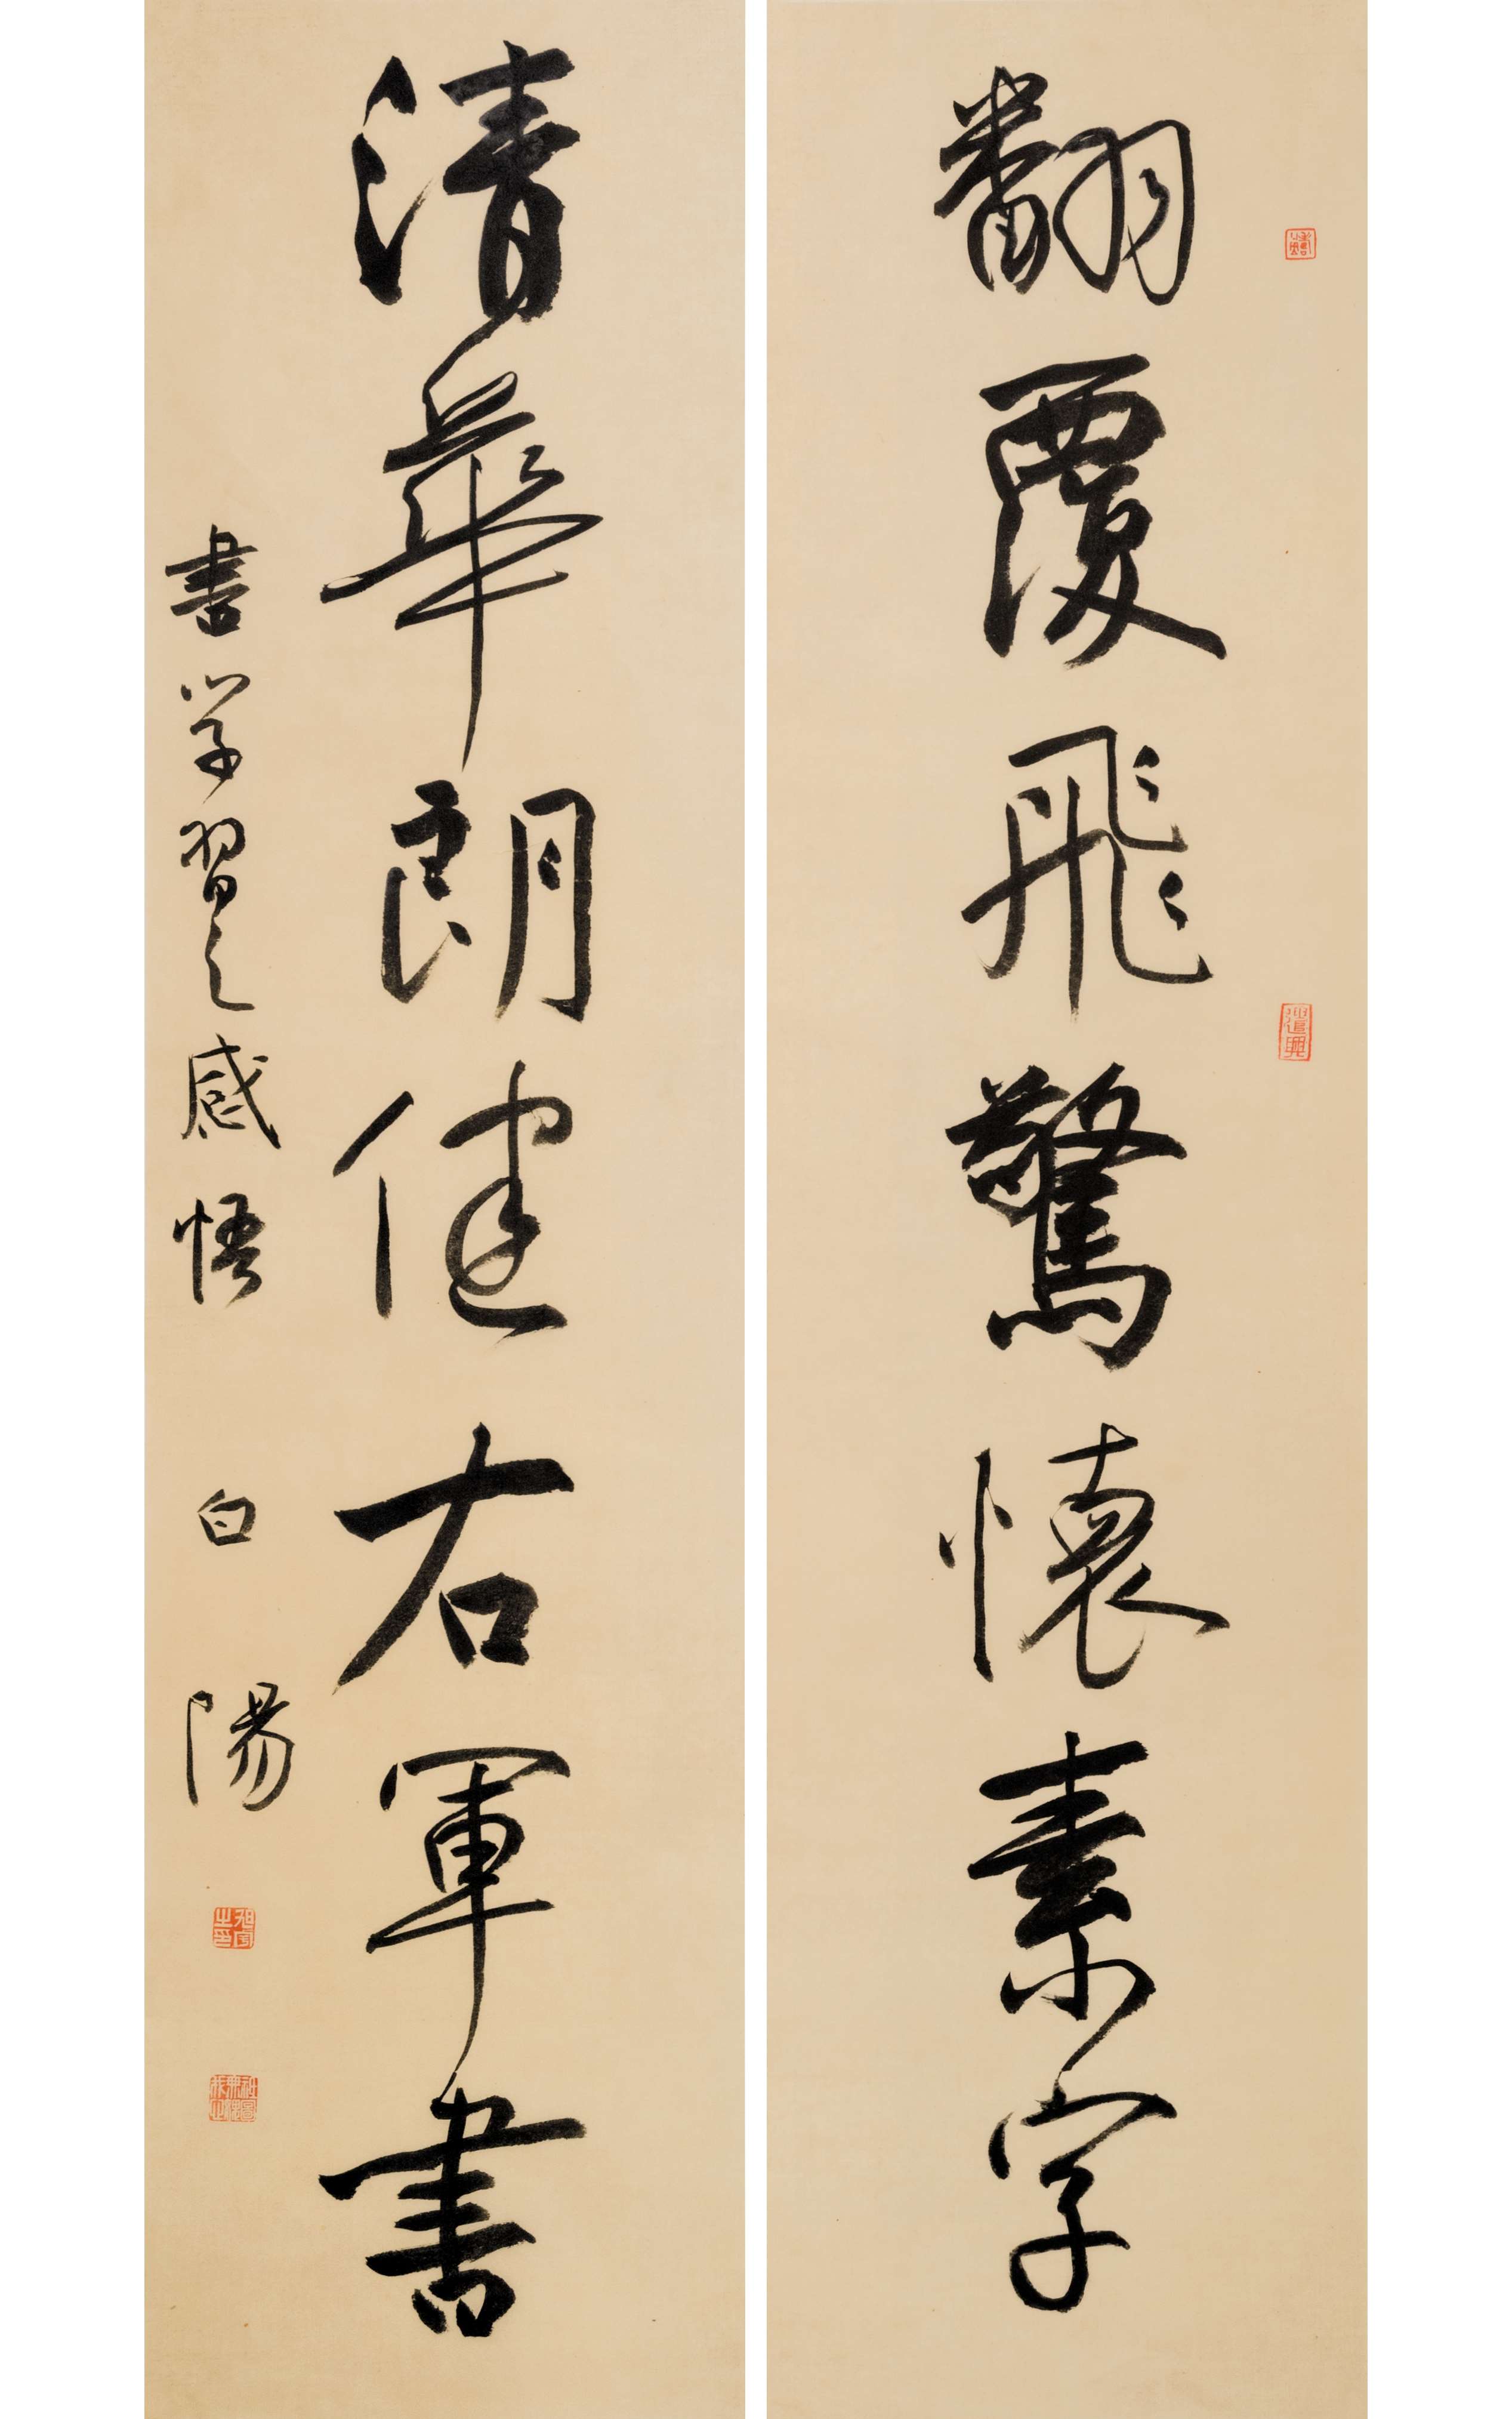 翻覆飛驚懷素字
清華朗健右軍書
書學習之感悟 白陽